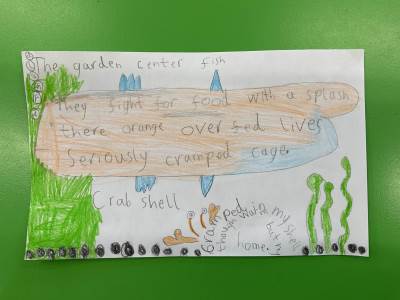 The garden center fish
They fight for food with a splash
there orange over fed lives
Seriously cramped cage.
Crab shell
Cramped
my shell
but my
home.